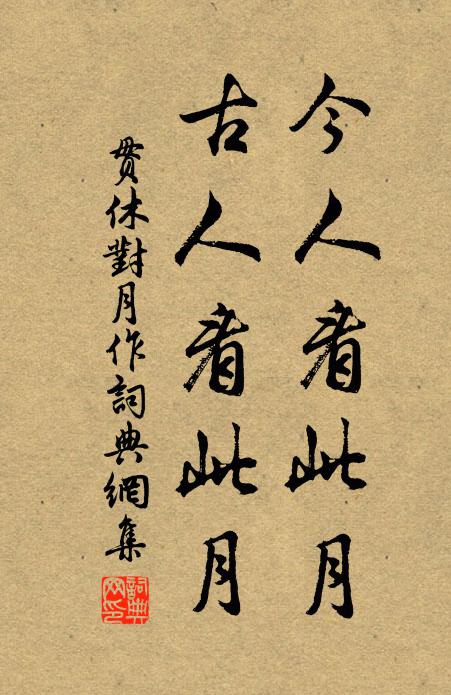 今人看此月
古人看此月
貫休對月作詞典網集
詞典網印